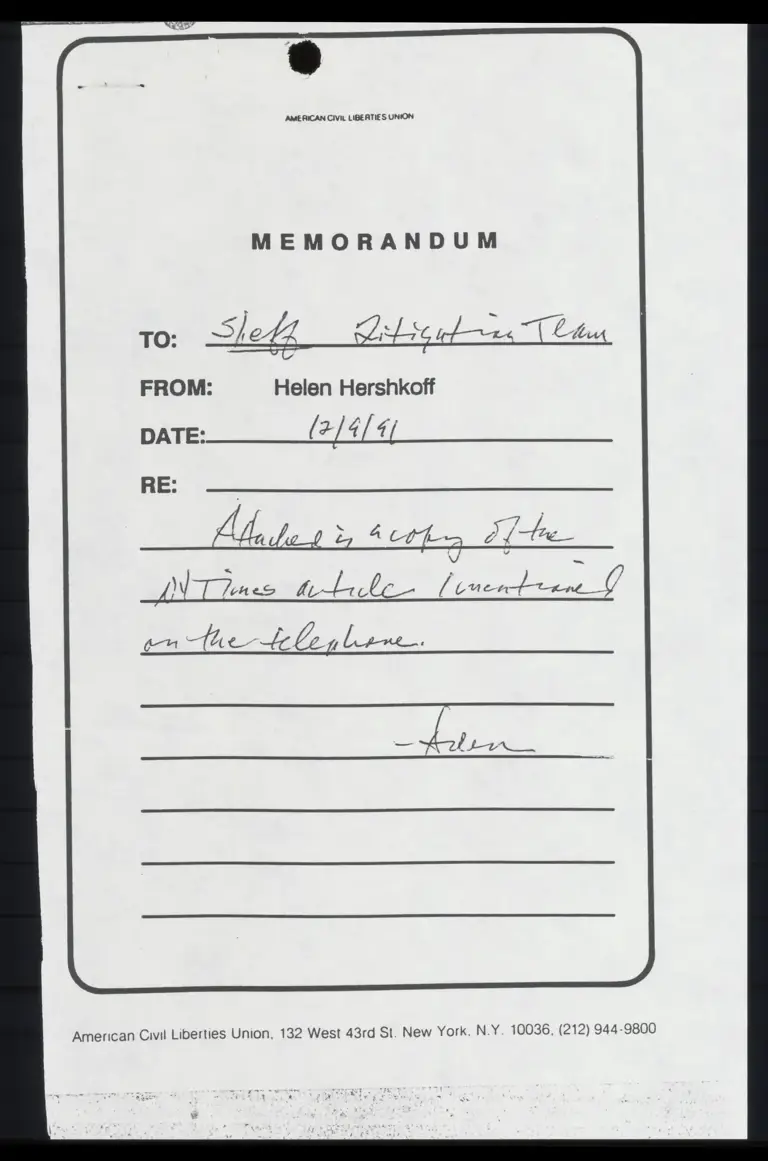 AMERICAN CIVIL LIBERTIES UNION
MEMORANDUM
TO: Sheff Litigation Team
FROM: Helen Hershkoff
DATE: 12/9/91
RE:
Attached is a copy of the
NY Times article I mentioned
on the telephone.
American Civil Liberties Union, 132 West 43rd St. New York, N.Y. 10036, (212) 944-9800